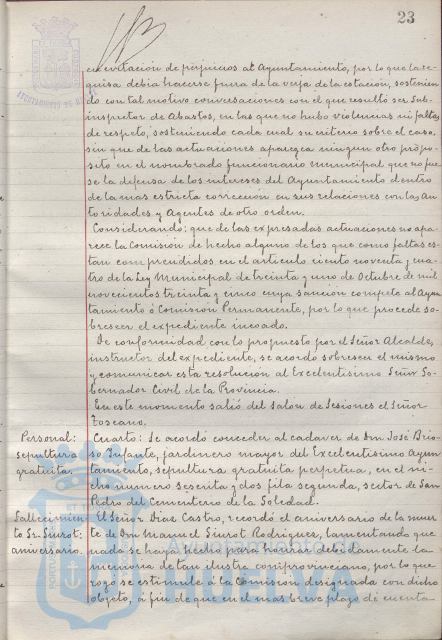 23
en evitación de perjuicios al Ayuntamiento, por lo que la re-
quisa debia hacerse fuera de la verja de la estación, sostenien
do con tal motivo conversaciones con el que resultó ser Sub-
inspector de Abastos, en las que no hubo violencias ni faltas
de respeto, sosteniendo cada cual su criterio sobre el caso,
sin que de las actuaciones aparezca ningun otro propó-
sito en el nombrado funcionario municipal que no fue
se la defensa de los intereses del Ayuntamiento dentro
de la mas estricta corrección en sus relaciones con las Au
toridades y Agentes de otro orden.
Considerando: que de las expresadas actuaciones no apa-
rece la Comisión de hecho alguno de los que como faltas es-
tan comprendidos en el articulo ciento noventa y cua-
tro de la Ley Municipal de treinta y uno de Octubre de mil
novecientos treinta y cinco cuya sanción compete al Ayun
tamiento ó Comisión Permanente, por lo que procede so-
breseer el expediente incoado.
De conformidad con lo propuesto por el Señor Alcalde,
instructor del expediente, se acordó sobreseer el mismo
y comunicar esta resolución al Excelentisimo Señor Go-
bernador Civil de la Provincia.
En este momento salió del Salón de Sesiones el Señor
Toscano.
Personal:
sepultura
gratuita.
Cuarto: Se acordó conceder al cadaver de Don José Brio-
so Infante, jardinero mayor del Excelentisimo Ayun
tamiento, sepultura gratuita perpetua, en el ni-
cho numero sesenta y dos fila segunda, sector de San
Pedro del Cementerio de la Soledad.
Fallecimien
to Sr. Siurot:
aniversario.
El Señor Diaz Castro, recordó el aniversario de la muer
te de Don Manuel Siurot Rodriguez, lamentando que
nada se haya hecho para honrar debidamente la
memoria de tan ilustre comprovinciano, por lo que
rogó se estimule á la Comisión designada con dicho
objeto, á fin de que en el mas breve plazo dé cuenta